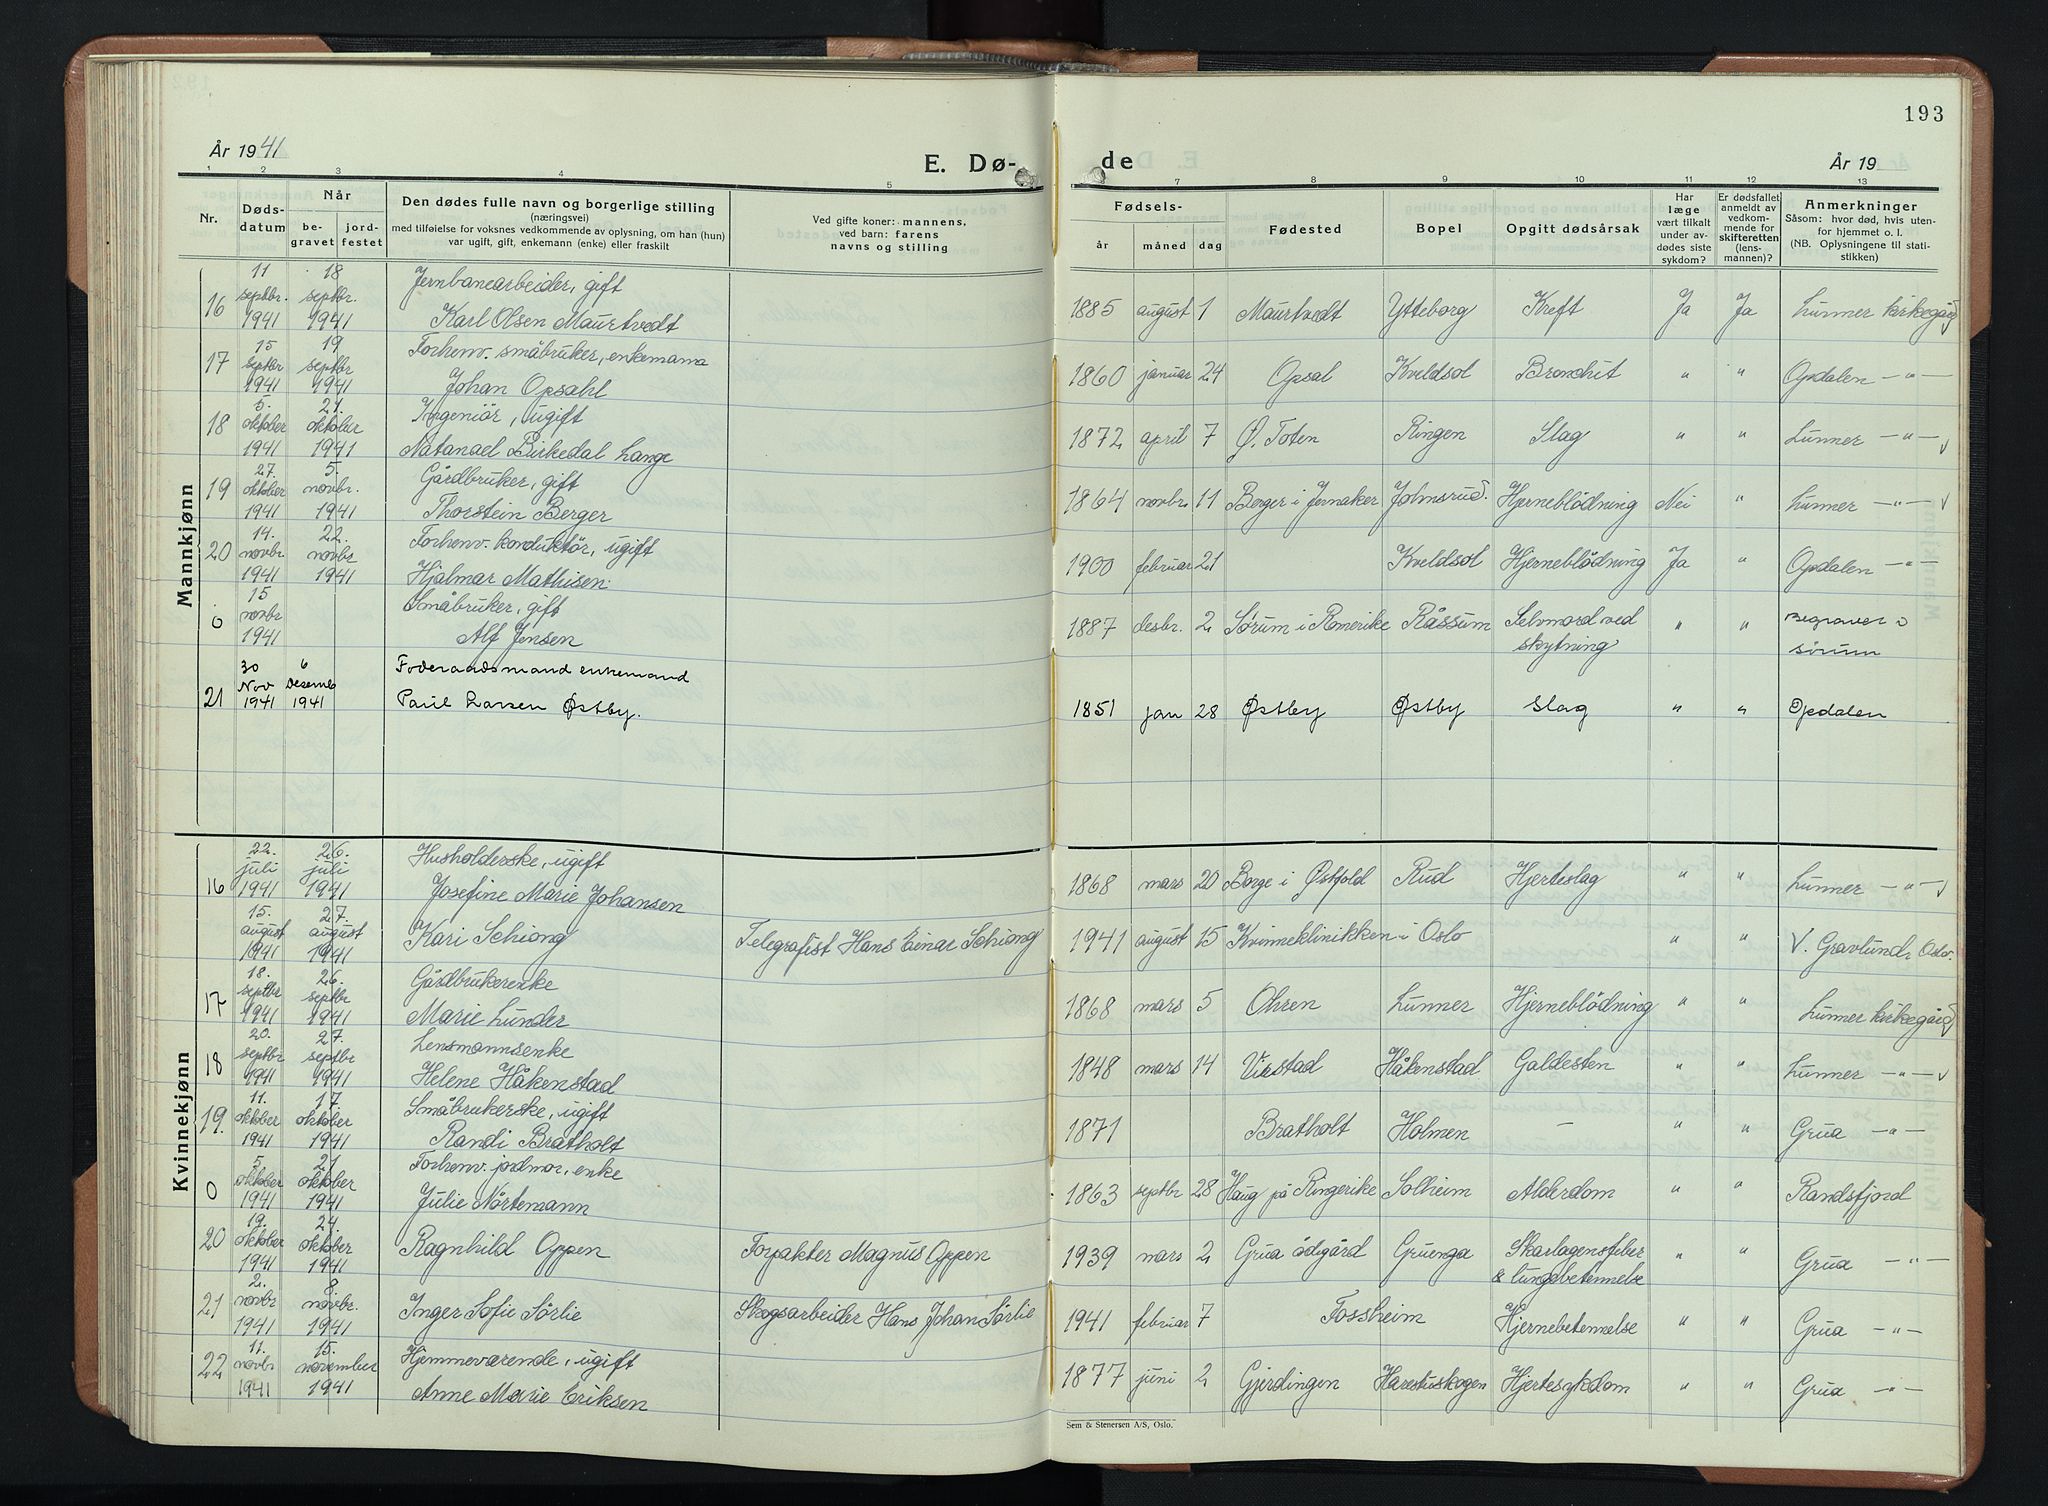 193
År 1941
E. Dø-
de
År 19
1 2 3 4 5 7 8 9 10 11 12 13
Nr.
Døds-
datum
Når
be-
gravet
jord-
festet
Den dødes fulle navn og borgerlige stilling
(næringsvei)
med tilføielse for voksnes vedkommende av oplysning, om han (hun)
var ugift, gift, enkemann (enke) eller fraskilt
Ved gifte koner: mannens,
ved barn: farens
navns og stilling
Fødsels-
år måned dag
Fødested
Bopel
Opgitt dødsårsak
Har
læge
vært tilkalt
under av-
dødes siste
sykdom?
Er dødsfallet
anmeldt av
vedkom-
mende for
skifteretten
(lens-
mannen)?
Anmerkninger
Såsom: hvor død, hvis uten-
for hjemmet o. l.
(NB. Oplysningene til stati-
stikken)
Mannkjønn
11 18 Jernbanearbeider, gift
16 septbr. septbr. 1885 august 1 Maurtvedt Ytteborg Kreft Ja Ja Lunner kirkegård
1941 1941 Karl Olsen Maurtvedt
15 19 Forhenv. småbruker, enkemann
17 septbr septbr 1860 januar 24 Opsal Kveldsol Bronchit " " Opdalen -"-
1941 1941 Johan Opsahl
5. 21. Ingeniör, ugift
18 oktober oktober 1872 april 7 Ø. Toten Ringen Slag " " Lunner -"-
1941 1941 Natanael Birkedal Lange
27. 5. Gårdbruker, gift
19 oktober novbr. 1864 novbr. 11 Berger i Jevnaker Johnsrud. Hjerneblödning Nei " Lunner -"-
1941 1941 Thorstein Berger
14. 22. Forhenv. konduktör, ugift
20 novbr. novbr 1900 februar 21 Kveldsol Hjerneblödning Ja " Opdalen -"-
1941 1941 Hjalmar Mathisen.
15 Småbruker, gift
0 novbr 1887 desbr. 2 Sørum i Romerike Råssum Selvmord ved skytning " " Begraves i Sørum
1941 Alf Jensen
30 6 Foderaadsmand enkemand
Nov Desemb
21 1941 1941 Paul Larsen Østby. 1851 jan 28 Østby Østby Slag " " Opdalen
Kvinnekjønn
22. 26. Husholderske, ugift
juli juli
16 1941 1941 Josefine Marie Johansen 1868 mars 20 Borge i Østfold Rud Hjerteslag " " Lunner -"-
15. 27.
august august Kari Schiong Telegrafist Hans Einar Schiong 1941 august 15 Kvinneklinikken i Oslo " " V. Gravlund, Oslo.
1941 1941
18. 26. Gårdbrukerenke
17 septbr septbr 1868 mars 5 Ohren Lunner Hjerneblödning " " Lunner kirkegård
1941 1941 Marie Lunder
20. 27. Lensmannsenke
18 septbr septbr 1848 mars 14 Virstad Håkenstad Galdesten " " Lunner -"-
1941 1941 Helene Håkenstad
11. 17. Småbrukerske, ugift
19. oktober oktober 1871 Bratholt Holmen - " " Grua -"-
1941 1941 Randi Bratholt
5. 21 Forhenv. jordmor, enke
0 oktober oktober 1863 septbr 28 Haug på Ringerike Solheim Alderdom " " Randsfjord
1941 1941 Julie Nörtemann
19. 24.
20 oktober oktober Ragnhild Oppen Forpakter Magnus Oppen 1939 mars 2 Grua ödegård Gruenga Skarlagensfeber & lungebetennelse " " Grua -"-
1941 1941
2. 8.
21 novbr novbr. Inger Sofie Sörlie Skogsarbeider Hans Johan Sörlie 1941 februar 7 Fossheim Hjernebetennelse " " Grua -"-
1941 1941
11. 15. Hjemmeværende, ugift
22 novbr november 1877 juni 2 Gjerdingen Harestuskogen Hjertesykdom " " Grua -"-
1941 1941 Anne Marie Eriksen
Sem & Stenersen A/S, Oslo.